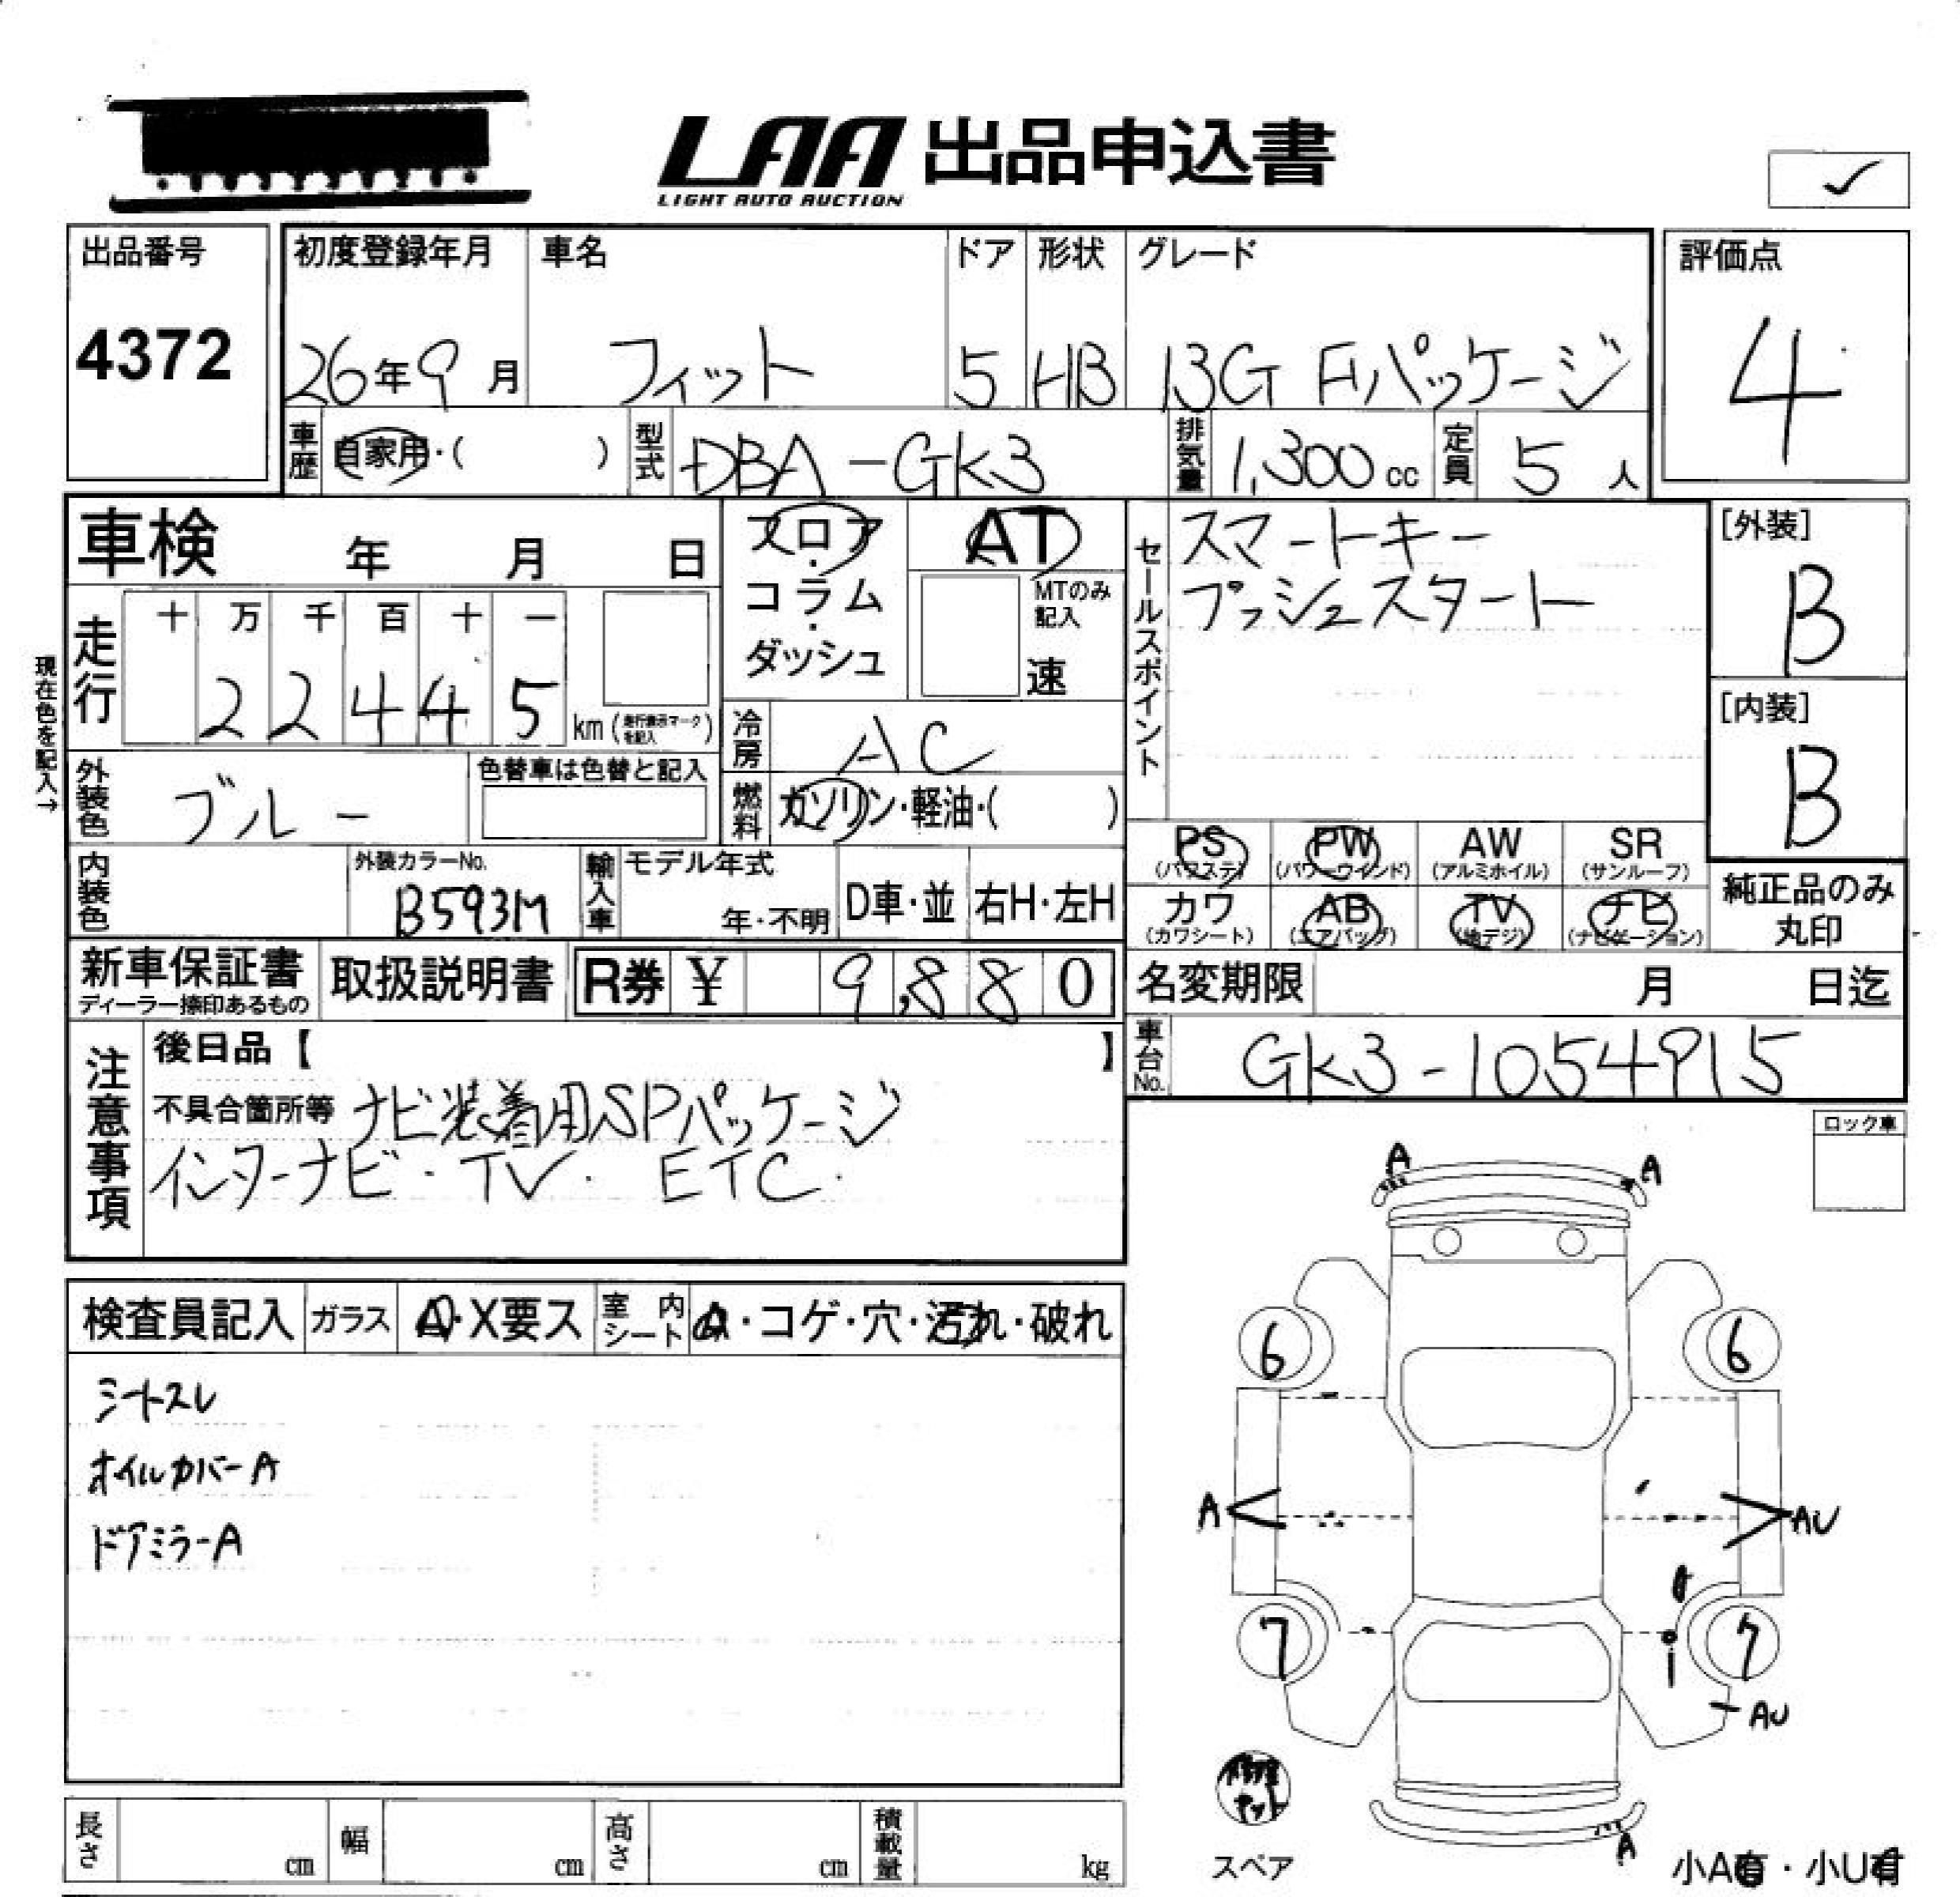 LAA 出品申込書
LIGHT AUTO AUCTION
✓
出品番号
4372
初度登録年月
26年9月
車名
フィット
ドア
5
形状
HB
グレード
13G Fパッケージ
評価点
4
車歴 自家用・( )
型式 DBA-GK3
排気量 1,300cc
定員 5人
車検 年 月 日
フロア・コラム・ダッシュ
AT
MTのみ記入
速
セールスポイント
スマートキー
プッシュスタート
[外装]
B
[内装]
B
現在色を記入→
走行
十 万 千 百 十 一
2 2 4 4 5
km(走行表示マークを記入)
冷房 AC
外装色 ブルー
色替車は色替と記入
燃料 ガソリン・軽油・( )
PS (パワステ)
PW (パワーウインド)
AW (アルミホイル)
SR (サンルーフ)
カワ (カワシート)
AB (エアバッグ)
TV (地デジ)
ナビ (ナビゲーション)
純正品のみ
丸印
内装色
外装カラーNo.
B593M
輸入車
モデル年式
年・不明
D車・並
右H・左H
新車保証書
ディーラー捺印あるもの
取扱説明書
R券 ¥ 9,880
名変期限 月 日迄
車台No. GK3-1054915
注意事項
後日品【 】
不具合箇所等 ナビ装着用SPパッケージ
インターナビ・TV・ETC・
ロック車
検査員記入
ガラス A・X要ス
室内シート A・コゲ・穴・汚れ・破れ
シートスレ
オイルカバーA
ドアミラーA
A A
6 6
A AU
7 7
AU
A
修理キット
スペア
小A有・小U有
長さ cm
幅 cm
高さ cm
積載量 kg